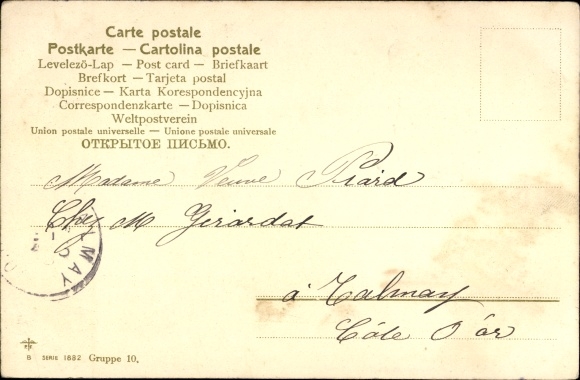 Carte postale
Postkarte — Cartolina postale
Levelező-Lap — Post card — Briefkaart
Brefkort — Tarjeta postal
Dopisnice — Karta Korespondencyjna
Correspondenzkarte — Dopisnica
Weltpostverein
Union postale universelle — Unione postale universale
ОТКРЫТОЕ ПИСЬМО.
Madame Veuve Piard
Chez M Gerardat
à Talmay
Côte D'or
MAY
B SERIE 1882 Gruppe 10.